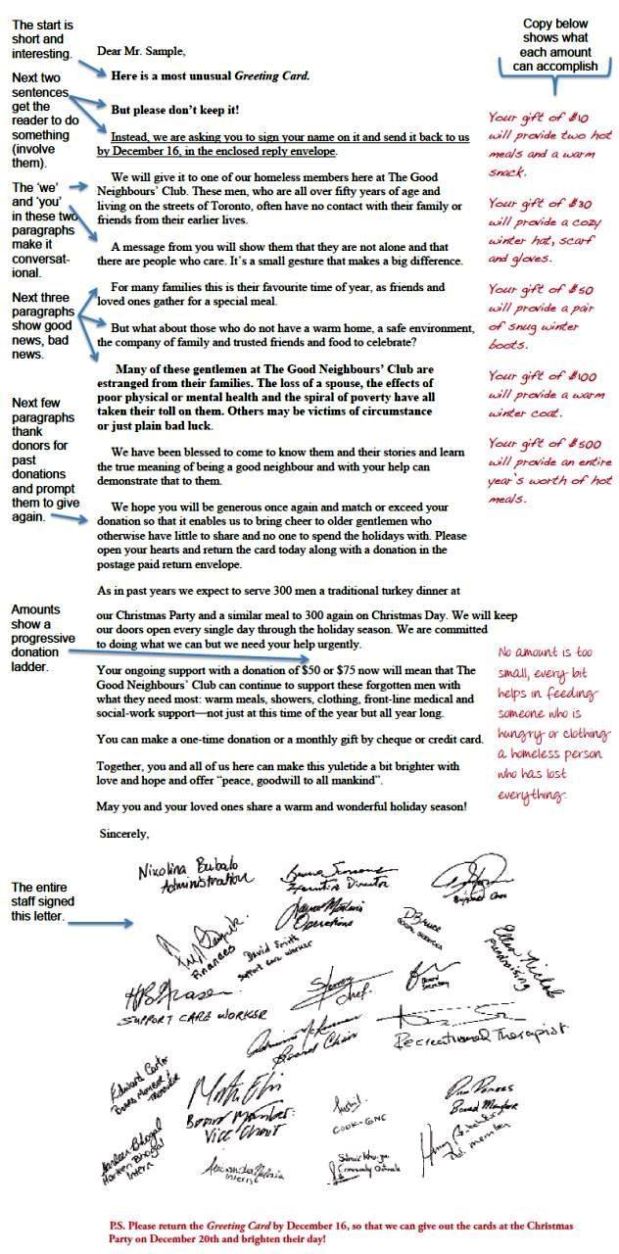 The start is
short and
interesting.
Next two
sentences
get the
reader to do
something
(involve
them).
The ‘we’
and ‘you’
in these two
paragraphs
make it
conversat-
ional.
Next three
paragraphs
show good
news, bad
news.
Next few
paragraphs
thank
donors for
past
donations
and prompt
them to give
again.
Amounts
show a
progressive
donation
ladder.
The entire
staff signed
this letter.
Dear Mr. Sample,
Here is a most unusual Greeting Card.
But please don’t keep it!
Instead, we are asking you to sign your name on it and send it back to us
by December 16, in the enclosed reply envelope.
We will give it to one of our homeless members here at The Good
Neighbours’ Club. These men, who are all over fifty years of age and
living on the streets of Toronto, often have no contact with their family or
friends from their earlier lives.
A message from you will show them that they are not alone and that
there are people who care. It’s a small gesture that makes a big difference.
For many families this is their favourite time of year, as friends and
loved ones gather for a special meal.
But what about those who do not have a warm home, a safe environment,
the company of family and trusted friends and food to celebrate?
Many of these gentlemen at The Good Neighbours’ Club are
estranged from their families. The loss of a spouse, the effects of
poor physical or mental health and the spiral of poverty have all
taken their toll on them. Others may be victims of circumstance
or just plain bad luck.
We have been blessed to come to know them and their stories and learn
the true meaning of being a good neighbour and with your help can
demonstrate that to them.
We hope you will be generous once again and match or exceed your
donation so that it enables us to bring cheer to older gentlemen who
otherwise have little to share and no one to spend the holidays with. Please
open your hearts and return the card today along with a donation in the
postage paid return envelope.
As in past years we expect to serve 300 men a traditional turkey dinner at
our Christmas Party and a similar meal to 300 again on Christmas Day. We will keep
our doors open every single day through the holiday season. We are committed
to doing what we can but we need your help urgently.
Your ongoing support with a donation of $50 or $75 now will mean that The
Good Neighbours’ Club can continue to support these forgotten men with
what they need most: warm meals, showers, clothing, front-line medical and
social-work support—not just at this time of the year but all year long.
You can make a one-time donation or a monthly gift by cheque or credit card.
Together, you and all of us here can make this yuletide a bit brighter with
love and hope and offer “peace, goodwill to all mankind”.
May you and your loved ones share a warm and wonderful holiday season!
Sincerely,
Copy below
shows what
each amount
can accomplish
Your gift of $10
will provide two hot
meals and a warm
snack.
Your gift of $30
will provide a cozy
winter hat, scarf
and gloves.
Your gift of $50
will provide a pair
of snug winter
boots.
Your gift of $100
will provide a warm
winter coat.
Your gift of $500
will provide an entire
year’s worth of hot
meals.
No amount is too
small, every bit
helps in feeding
someone who is
hungry or clothing
a homeless person
who has lost
everything.
Nixolina Bubalo
Administration
Executive Director
Operations
Finances
David Smith
Support care worker
DBruce
Fundraising
SUPPORT CARE WORKER
Chef.
Board Chair
Recreational Therapist
Edward Carter
Board Member
Board Member:
Vice Chair
COOK-GNC
Board Member
Harleen Bhogal
Intern
P.S. Please return the Greeting Card by December 16, so that we can give out the cards at the Christmas
Party on December 20th and brighten their day!